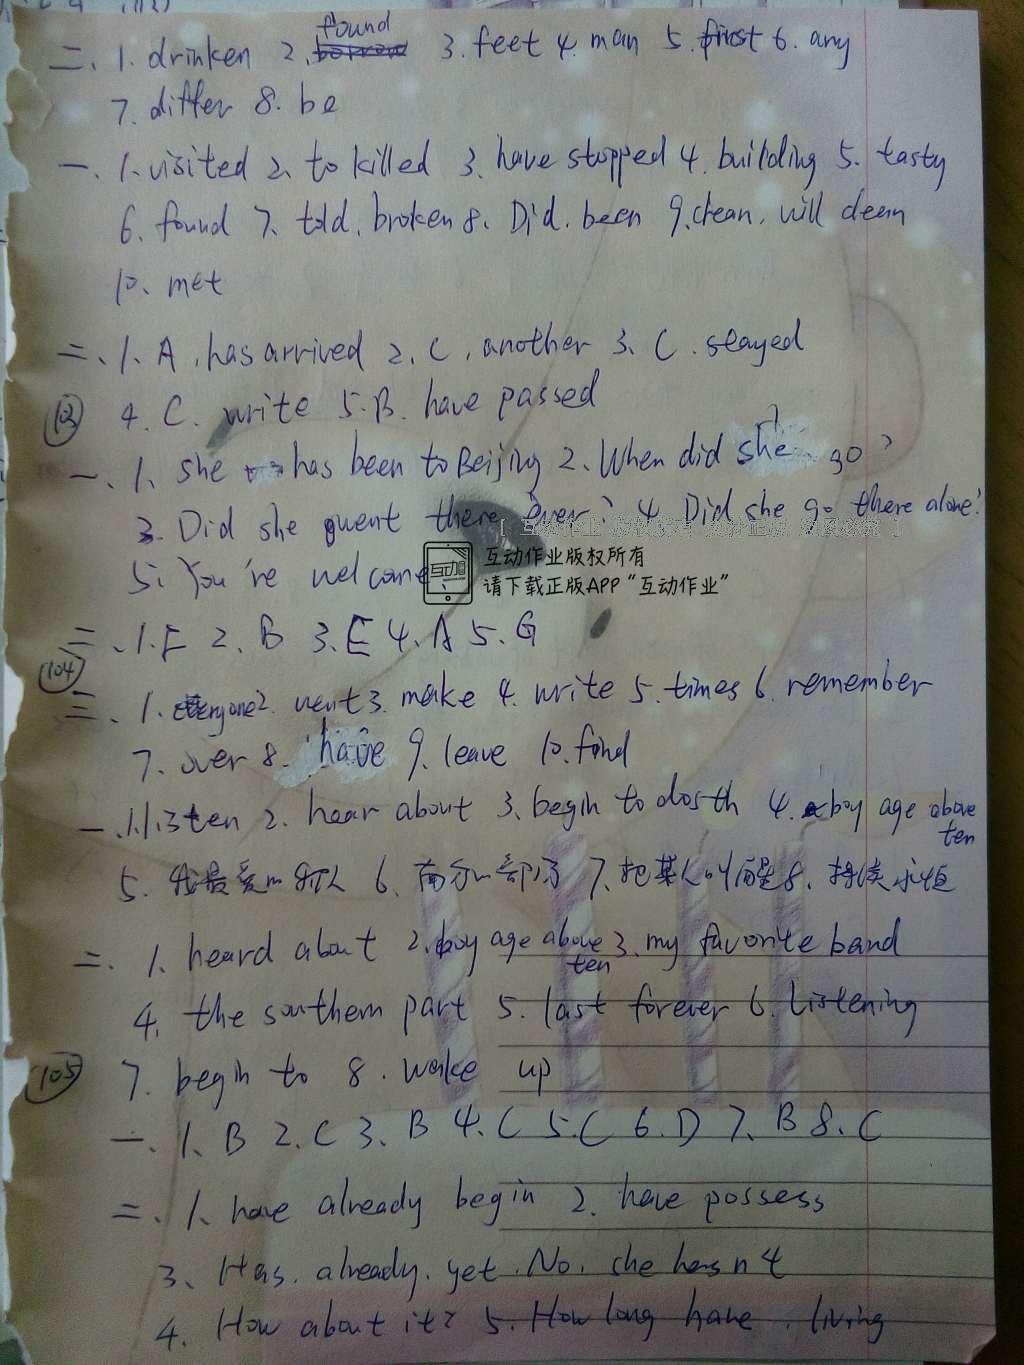 二、1. drinken 2. found 3. feet 4. man 5. first 6. any
7. differ 8. be
一、1. visited 2. to killed 3. have stopped 4. building 5. tasty
6. found 7. told. broken 8. Did. been 9. clean. will clean
10. met
二、1. A. has arrived 2. C. another 3. C. stayed
103
4. C. write 5. B. have passed
一、1. she has been to Beijing 2. When did she go?
3. Did she went there ever? 4. Did she go there alone?
互动作业版权所有
请下载正版APP“互动作业”
5. You're welcome
二、1. F 2. B 3. E 4. A 5. G
104
三、1. everyone 2. went 3. make 4. write 5. times 6. remember
7. over 8. have 9. leave 10. find
一、1. listen 2. hear about 3. begin to do sth 4. boy age above
ten
5. 我最爱的 6. 南方的部分 7. 把某人叫醒 8. 持续永恒
二、1. heard about 2. boy age above 3. my favorite band
ten
4. the southern part 5. last forever 6. Listening
105
7. begin to 8. wake up
一、1. B 2. C 3. B 4. C 5. C 6. D 7. B 8. C
二、1. have already begin 2. have possess
3. Has. already. yet. No. she hasn't
4. How about it? 5. How long have. living